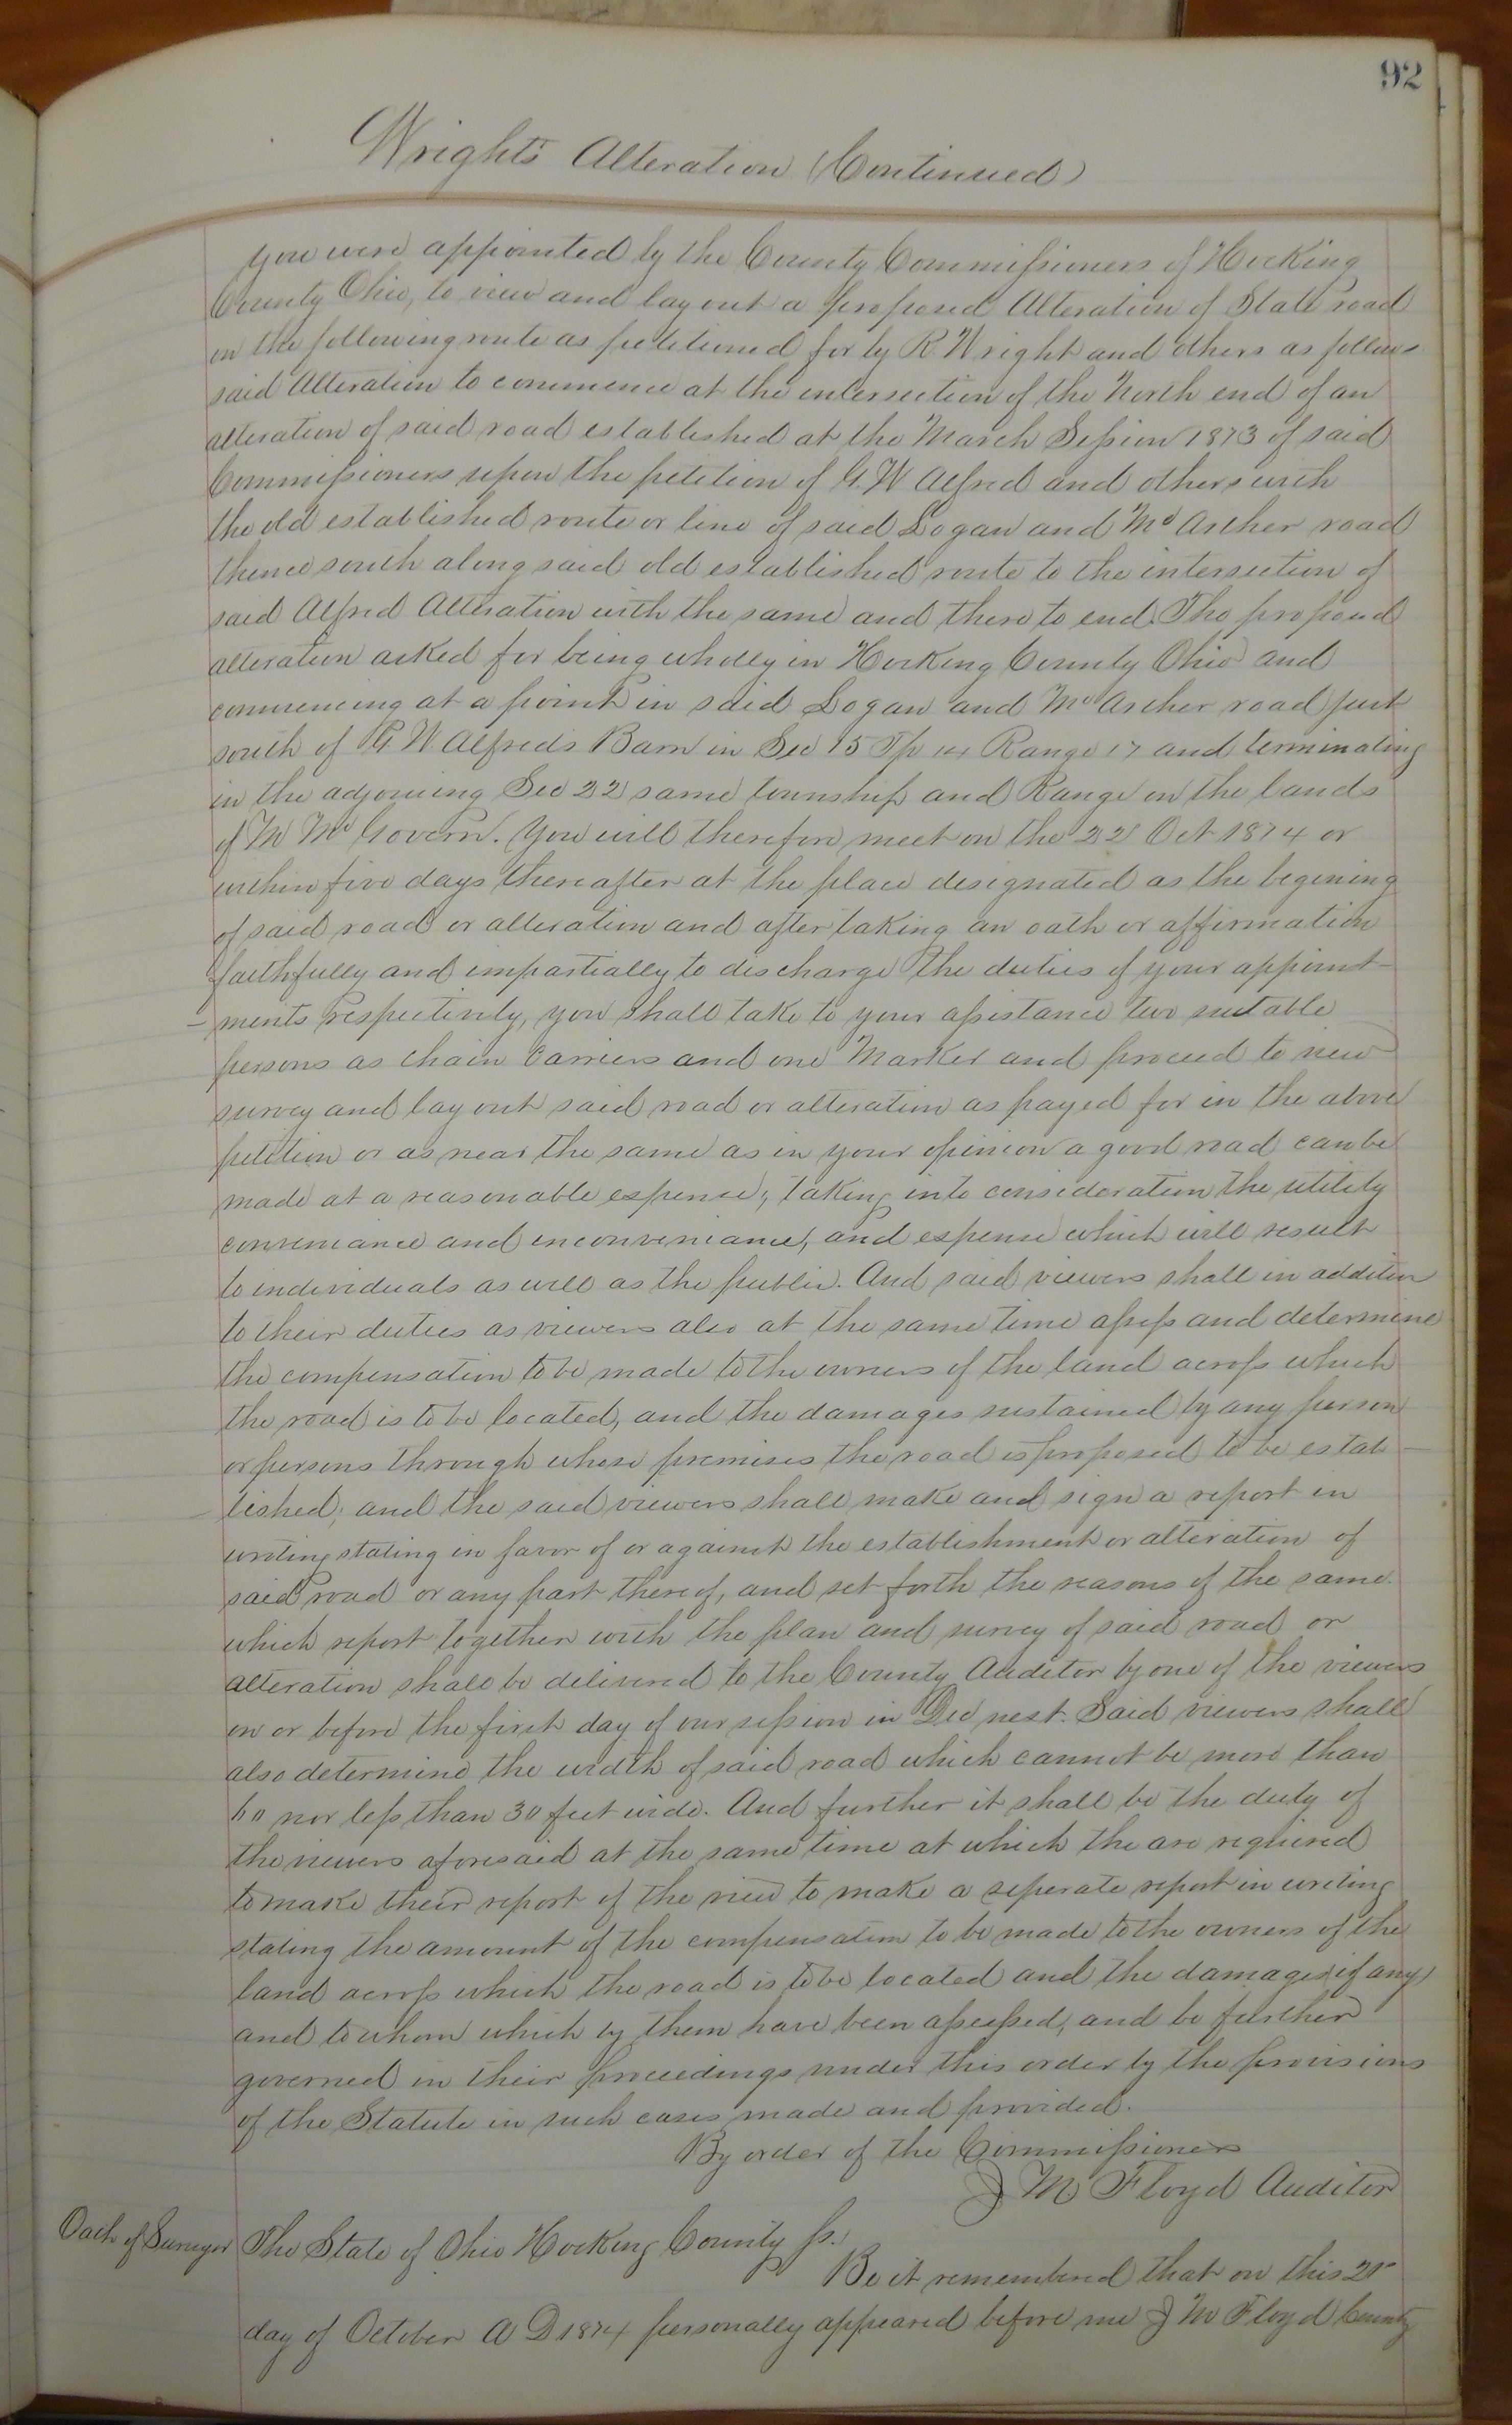 92
Wright's Alteration (Continued)
you were appointed by the County Commissioners of Hocking
County Ohio, to view and lay out a proposed Alteration of State road
on the following route as petitioned for by R. Wright and others as follows
said Alteration to commence at the intersection of the North end of an
alteration of said road established at the March Session 1873 of said
Commissioners upon the petition of G. W Alfred and others with
the old established route or line of said Logan and McArther road
thence south along said old established route to the intersection of
said Alfred Alteration with the same and there to end. The proposed
alteration asked for being wholly in Hocking County Ohio and
commencing at a point in said Logan and McArther road just
south of G W Alfreds Barn in Sec 15 Tp 14 Range 17 and terminating
in the adjoining Sec 22 same township and Range on the lands
of M McGovern. You will therefore meet on the 22 Oct 1874 or
within five days thereafter at the place designated as the begining
of said road or alteration and after taking an oath or affirmation
faithfully and impartially to discharge the duties of your appoint-
-ments respectively, you shall take to your assistance two suitable
persons as chain Carriers and one Marker and proceed to view
survey and lay out said road or alteration as payed for in the above
petition or as near the same as in your opinion a good road can be
made at a reasonable expense, taking into consideration the utility
conveniance and inconveniance, and expense which will result
to individuals as well as the public. And said viewers shall in addition
to their duties as viewers also at the same time assess and determine
the compensation to be made to the owners of the land across which
the road is to be located, and the damages sustained by any person
or persons through whose premises the road is proposed to be estab-
-lished; and the said viewers shall make and sign a report in
writing stating in favor of or against the establishment or alteration of
said road or any part thereof, and set forth the reasons of the same
which report together with the plan and survey of said road or
alteration shall be delivered to the County Auditor by one of the viewers
on or before the first day of our session in Dec next. Said viewers shall
also determine the width of said road which cannot be more than
60 nor less than 30 feet wide. And further it shall be the duty of
the viewers aforesaid at the same time at which the are required
to make their report of the view to make a seperate report in writing
stating the amount of the compensation to be made to the owners of the
land across which the road is to be located and the damages (if any)
and to whom which by them have been assessed, and be further
governed in their proceedings under this order by the provisions
of the Statute in such cases made and provided.
By order of the Commissioners
J M Floyd Auditor
Oath of Surveyor
The State of Ohio Hocking County ss.
Be it remembered that on this 21
day of October A D 1874 personally appeared before me J M Floyd County